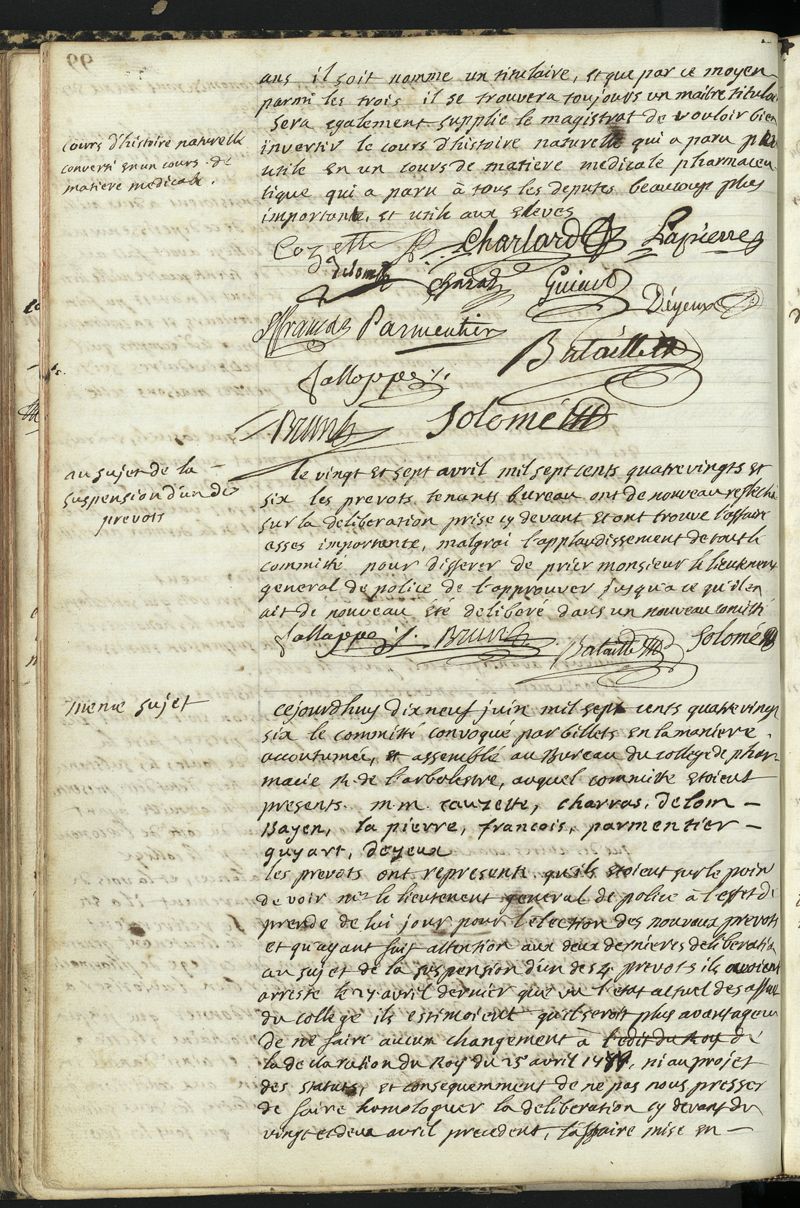 99
ans il soit nommé un titulaire, et que par ce moyen
parmi les trois il se trouvera toujours un maitre titulai
sera egalement supplié le magistrat de vouloir bien
cours d'histoire naturelle
converti en un cours de
matiere medicale.
invertir le cours d'histoire naturelle qui a paru peu
utile en un cours de matiere medicale pharmaceu
tique qui a paru à tous les deputés beaucoup plus
importante, et utile aux eleves
Cozette Charlard Lapierre
delom Charas Guiard Déyeux
françois Parmentier
Bataille
fallappe
Brun Solomé
au sujet de la
suspension d'un de
prevots
le vingt et sept avril mil sept cents quatrevingts et
six les prevots tenants bureau ont de nouveau reflechi
sur la deliberation prise cy devant et ont trouvé l'affaire
asses importante, malgrai l'applaudissement de tout le
committé pour differer de prier monsieur le lieutenent
general de police de l'approuver jusqu'a ce qu'il en
ait de nouveau été deliberé dans un nouveau comitté
fallappe Brun Bataille Solomé
meme sujet
cejourdhuy dixneuf juin mil sept cents quatrevingt
six le committé convoqué par billets en la maniere
accoutumée, et assemblé au Bureau du college de phar
macie R. de l'arbalestre, auquel committé etoient
presents. m.m. cauzette, charras, delom
Bayen, la pierre, francois, parmentier
guyart, deyeux
les prevots ont represente qu'ils etoient sur le poin
de voir mr. le lieutenent general de police à l'effet de
prende de lui jour pour l'election des nouvaux prevots
et qu'ayant fait attention aux deux dernieres deliberatio
au sujet de la suspension d'un des 4 prevots ils avoient
arresté le 27 avril dernier que vu l'etat actuel des affair
du college ils estimoient qu'il seroit plus avantageux
de ne faire aucun changement à l'edit du Roy de
la declaration du Roy du 25 avril 1777, ni au projet
des statuts, et consequemment de ne pas nous presser
de faire homologuer la deliberation cy devant du
vingt et deux avril precedent, l'affaire mise en